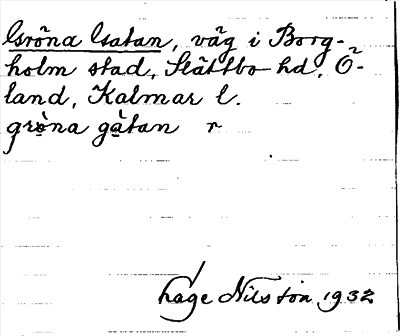 Gröna Gatan, väg i Borg-
holm stad, Slättbo hd, Ö-
land, Kalmar l.
grö̀na gà̱tan r
Åke Nilsson 1932